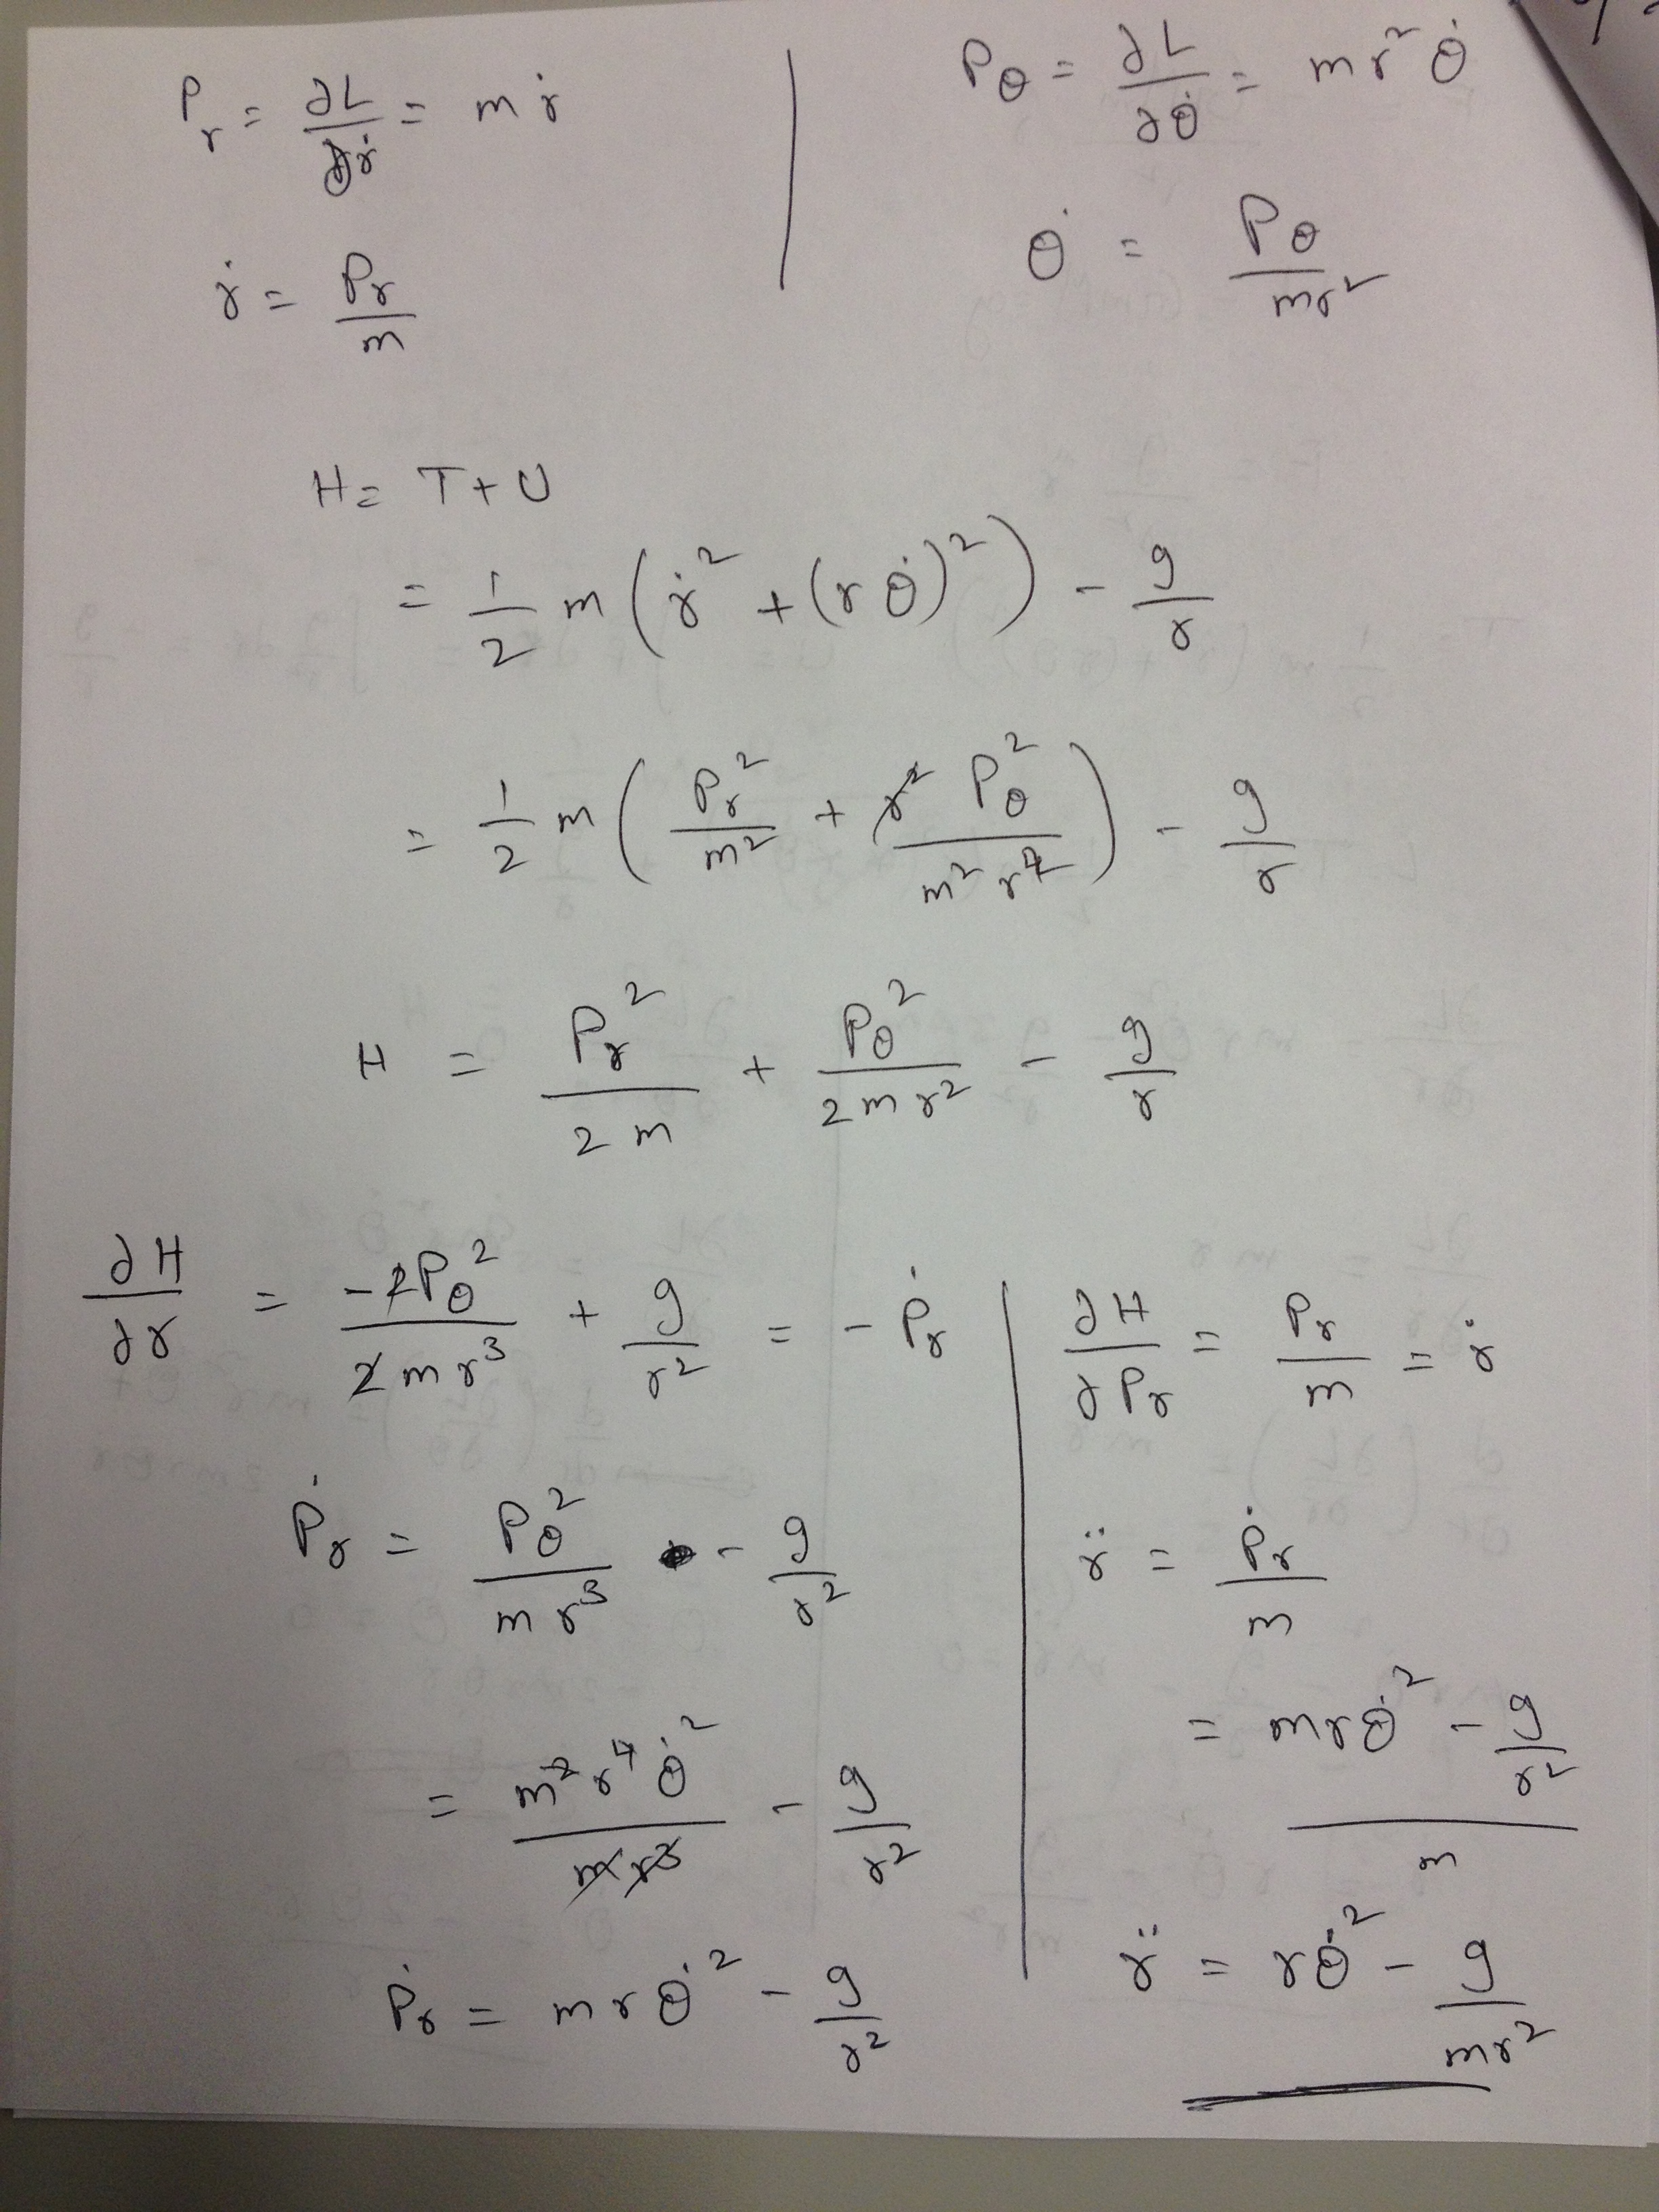 P_r = ∂L/∂ṙ = m ṙ
ṙ = P_r/m
P_θ = ∂L/∂θ̇ = m r² θ̇
θ̇ = P_θ/mr²
H = T + U
= 1/2 m (ṙ² + (r θ̇)²) - g/r
= 1/2 m (P_r²/m² + r² P_θ²/m² r⁴) - g/r
H = P_r²/2m + P_θ²/2mr² - g/r
∂H/∂r = -2P_θ²/2mr³ + g/r² = -Ṗ_r
Ṗ_r = P_θ²/mr³ - g/r²
= m² r⁴ θ̇²/m r³ - g/r²
Ṗ_r = m r θ̇² - g/r²
∂H/∂P_r = P_r/m = ṙ
r̈ = Ṗ_r/m
= (m r θ̇² - g/r²)/m
r̈ = r θ̇² - g/mr²